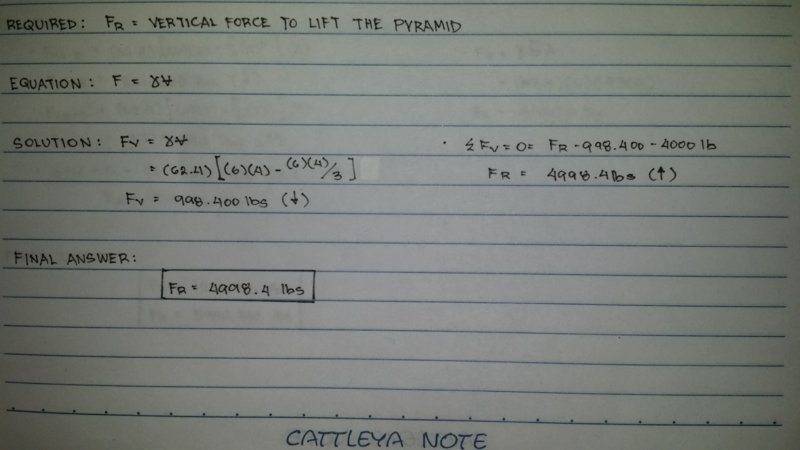 REQUIRED: FR = VERTICAL FORCE TO LIFT THE PYRAMID
EQUATION: F = γV
SOLUTION: FV = γV
= (62.4)[(6)(4) - (6)(4)/3]
FV = 998.400 lbs (↓)
ΣFV = 0 = FR - 998.400 - 4000 lb
FR = 4998.4 lbs (↑)
FINAL ANSWER:
FR = 4998.4 lbs
CATTLEYA NOTE